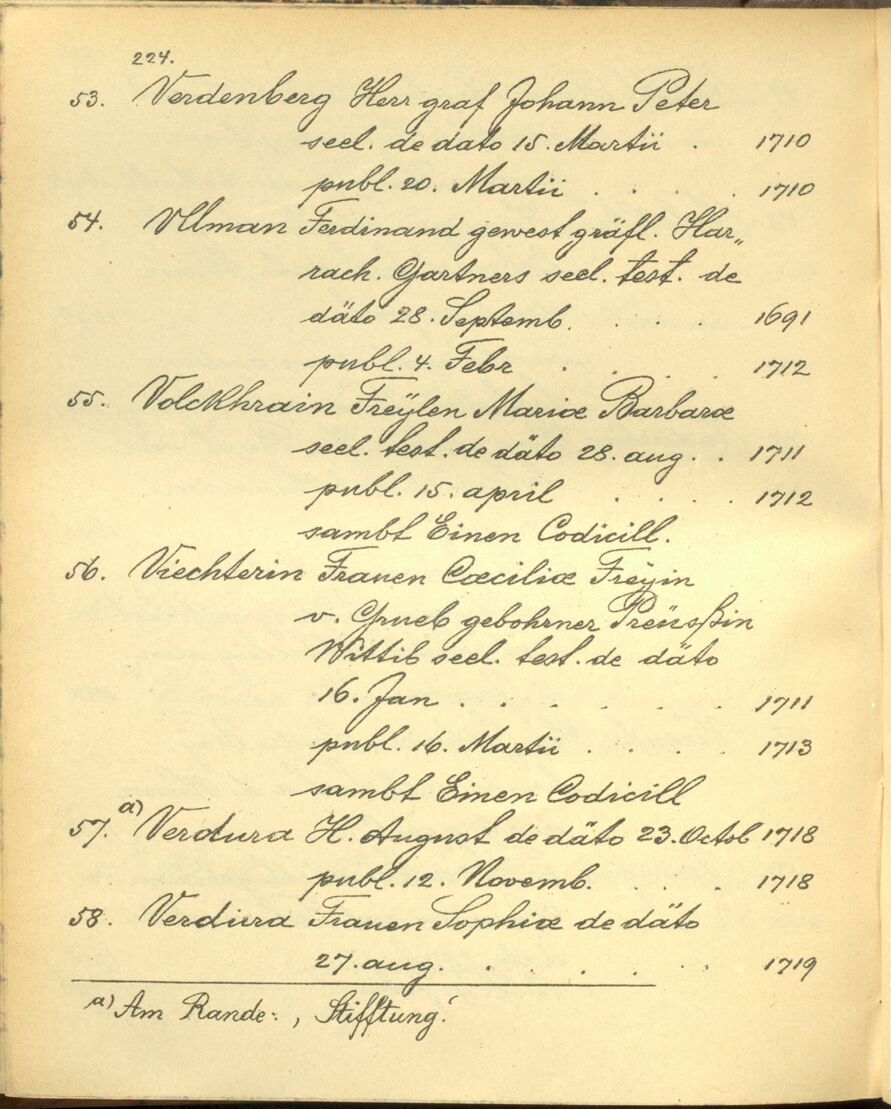 224.
53. Verdenberg Herr graf Johann Peter
seel. de dato 15. Martii . 1710
publ. 20. Martii . . . . 1710
54. Vllman Ferdinand gewest gräfl. Har„
rach. Gartners seel. test. de
däto 28. Septemb. . . . 1691
publ. 4. Febr . . . . 1712
55. Volckhrain Freÿlen Mariæ Barbaræ
seel. test. de däto 28. aug. . 1711
publ. 15. april . . . 1712
sambt Einen Codicill.
56. Viechterin Frauen Cæciliæ Freÿin
v. Grueb gebohrner Preüsßin
Wittib seel. test. de däto
16. Jan . . . . . . 1711
publ. 16. Martii . . . . 1713
sambt Einen Codicill
57. a) Verdura H. August de däto 23. Octob 1718
publ. 12. Novemb. . . . 1718
58. Verdura Frauen Sophiæ de däto
27. aug. . . . . . . 1719
a) Am Rande: ‚Stifftung.‘